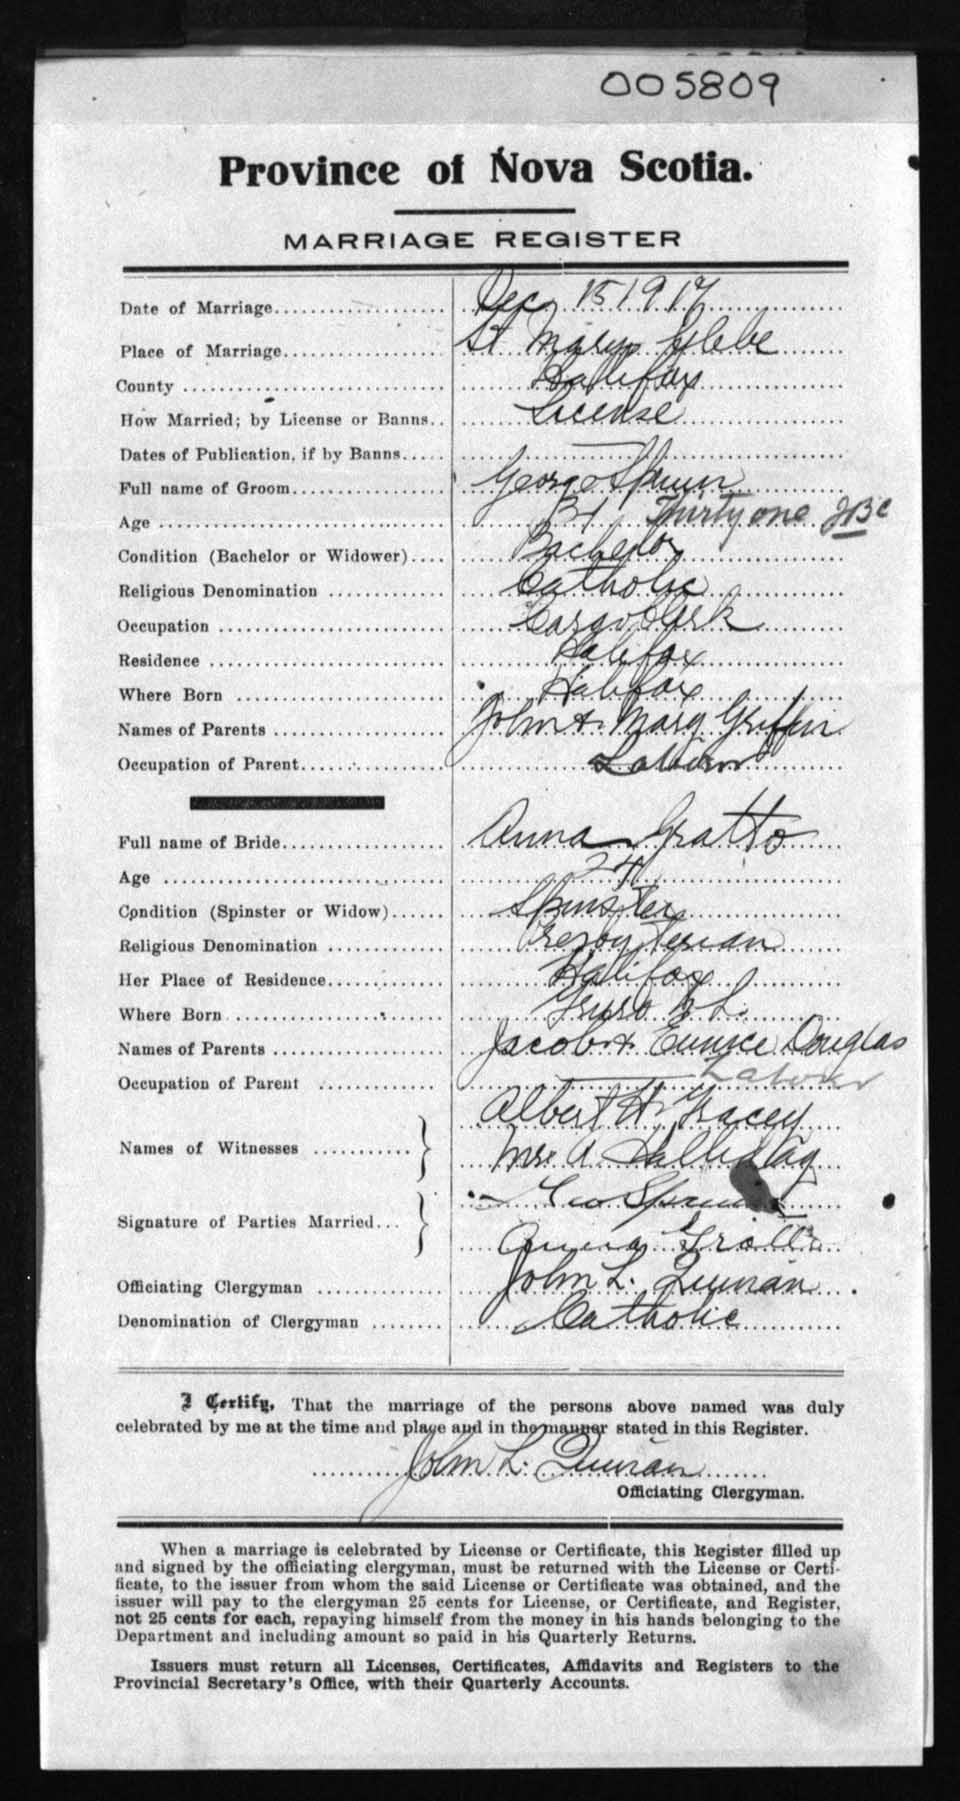 005809
Province of Nova Scotia.
MARRIAGE REGISTER
Date of Marriage Dec 15 1917
Place of Marriage St Marys Glebe
County Halifax
How Married; by License or Banns License
Dates of Publication, if by Banns
Full name of Groom George
Age 31 Thirty one JBC
Condition (Bachelor or Widower) Bachelor
Religious Denomination Catholic
Occupation Cargo Clerk
Residence Halifax
Where Born Halifax
Names of Parents John & Mary Griffin
Occupation of Parent Labour
Full name of Bride Anna Gratto
Age 24
Condition (Spinster or Widow) Spinster
Religious Denomination Presbyterian
Her Place of Residence Halifax
Where Born Truro
Names of Parents Jacob & Eunice Douglas
Occupation of Parent Labour
Names of Witnesses Albert H. Tracey
Mrs A. Halliday
Signature of Parties Married Geo
Anna Gratto
Officiating Clergyman John L. Quinan
Denomination of Clergyman Catholic
I Certify, That the marriage of the persons above named was duly
celebrated by me at the time and place and in the manner stated in this Register.
John L. Quinan
Officiating Clergyman.
When a marriage is celebrated by License or Certificate, this Register filled up
and signed by the officiating clergyman, must be returned with the License or Certi-
ficate, to the issuer from whom the said License or Certificate was obtained, and the
issuer will pay to the clergyman 25 cents for License, or Certificate, and Register,
not 25 cents for each, repaying himself from the money in his hands belonging to the
Department and including amount so paid in his Quarterly Returns.
Issuers must return all Licenses, Certificates, Affidavits and Registers to the
Provincial Secretary's Office, with their Quarterly Accounts.